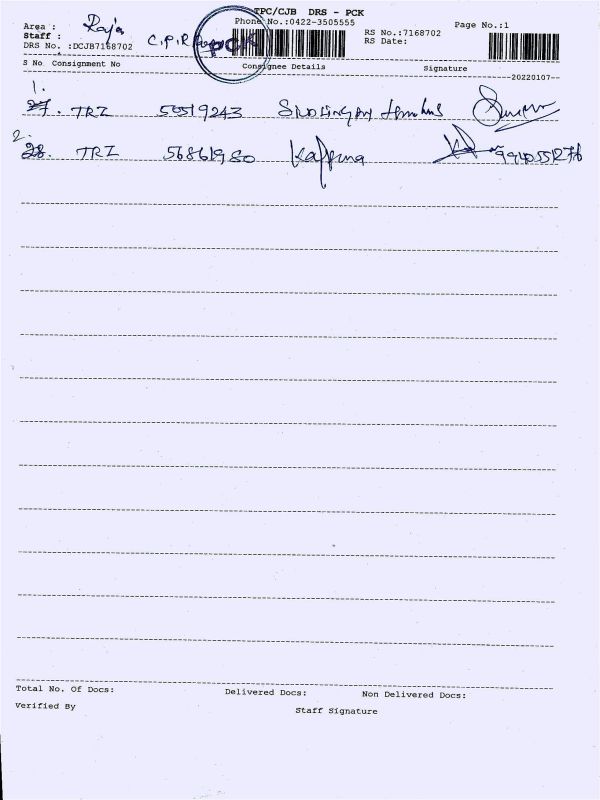 TPC/CJB DRS - PCK
Area : Raja Phone No.:0422-3505555 Page No.:1
Staff : C.P.R PCK RS No.:7168702
DRS No. :DCJB7168702 RS Date:
S No Consignment No Consignee Details Signature
20220107
1.
27. TRZ 50519243
2.
28. TRZ 56861980 9940551276
Total No. Of Docs: Delivered Docs: Non Delivered Docs:
Verified By Staff Signature